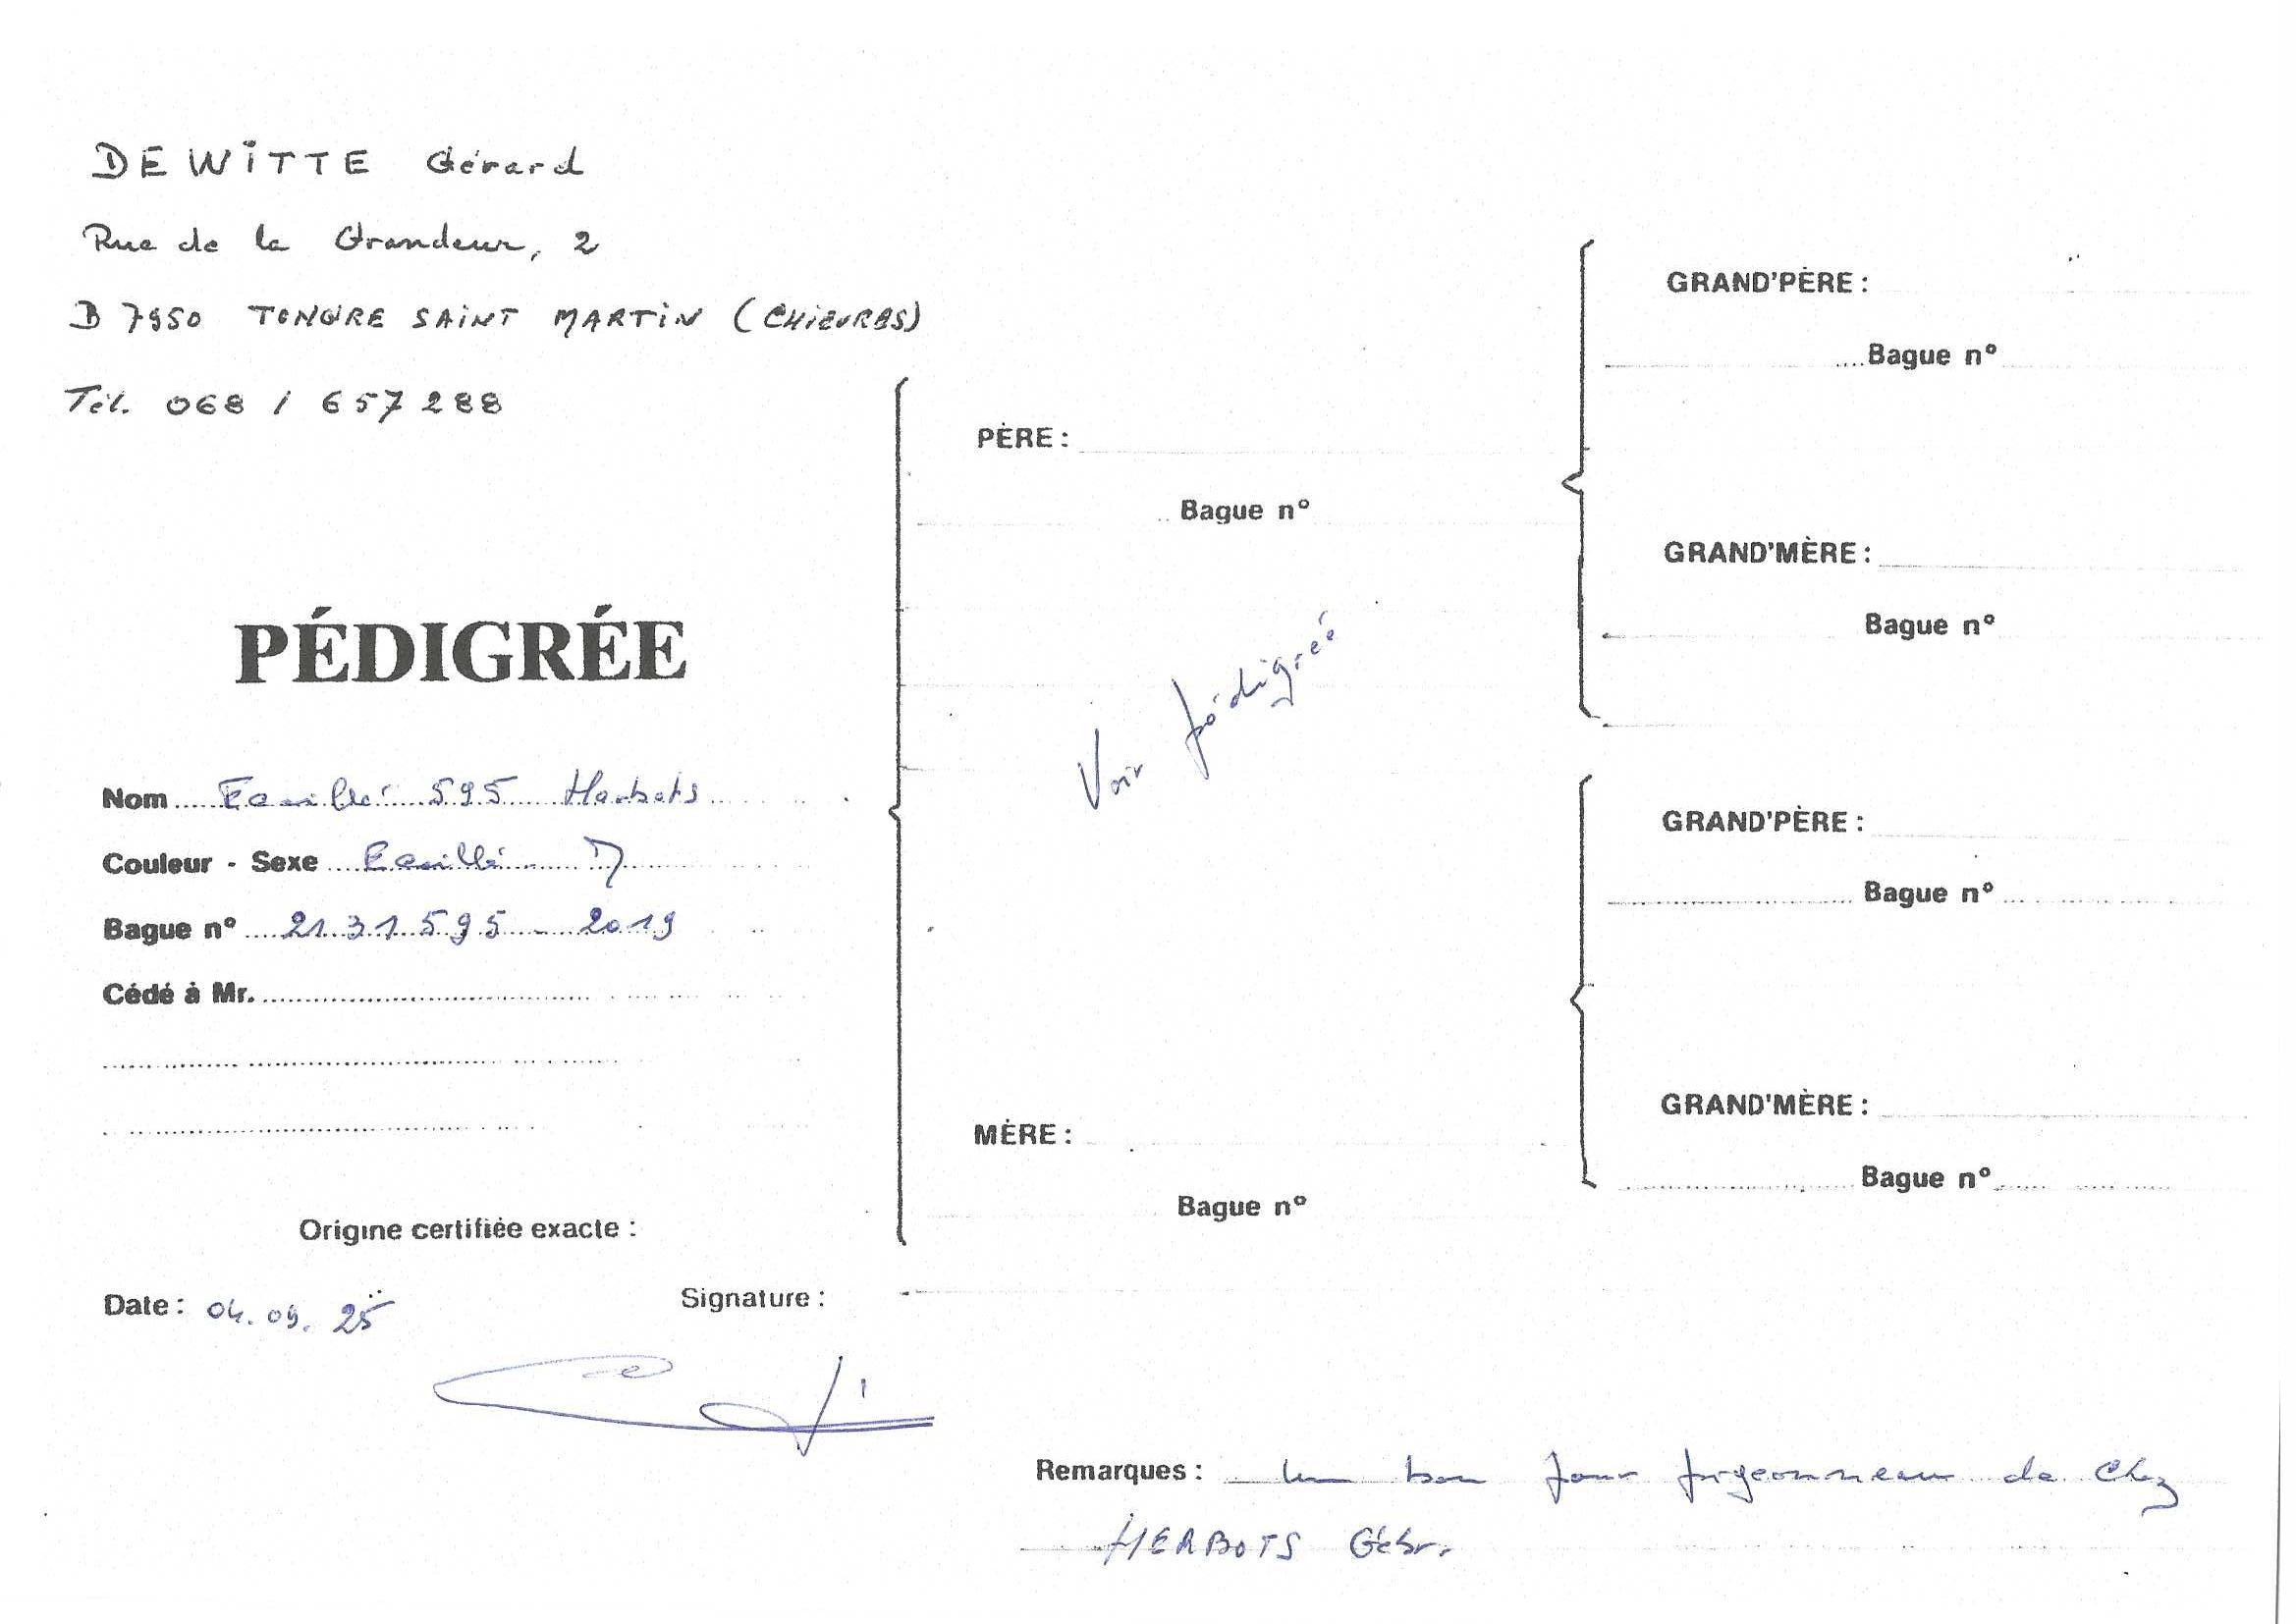 DEWITTE Gérard
Rue de la Grandeur, 2
B 7950 TONGRE SAINT MARTIN (CHIEVRES)
Tél. 068 / 657288
PÉDIGRÉE
Nom Ecaillé 595 Herbots
Couleur - Sexe Ecaillé -
Bague n° 2131595 - 2019
Cédé à Mr.
Origine certifiée exacte :
Date : 04.09.25
Signature :
PÈRE :
Bague n°
Voir pédigréé
MÈRE :
Bague n°
GRAND'PÈRE :
Bague n°
GRAND'MÈRE :
Bague n°
GRAND'PÈRE :
Bague n°
GRAND'MÈRE :
Bague n°
Remarques : Un bon pour pigeonneau de chez
HERBOTS Gébr.